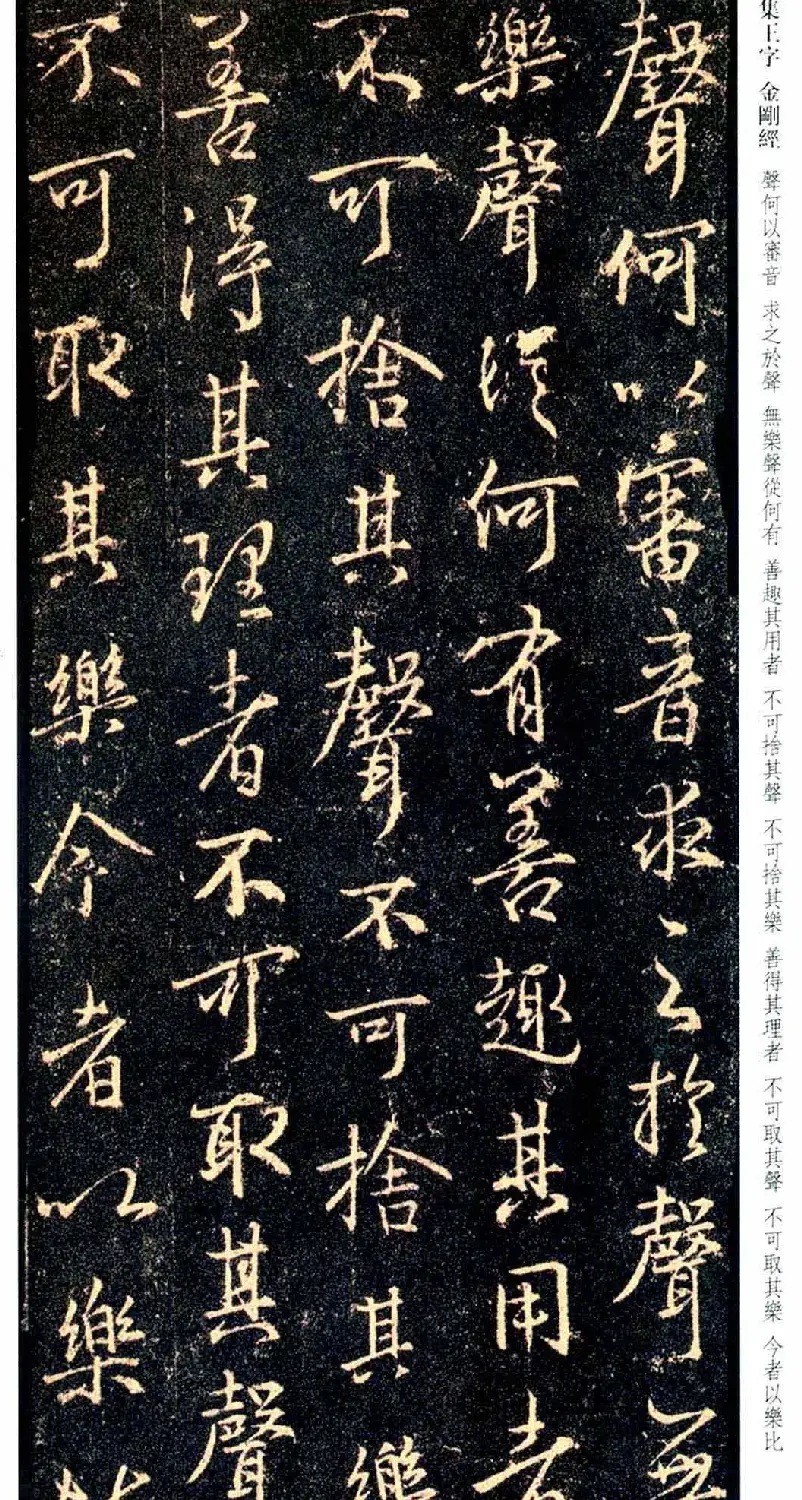 集王字 金剛經 聲何以審音 求之於聲 無樂聲從何有 善趣其用者 不可捨其聲 不可捨其樂 善得其理者 不可取其聲 不可取其樂 今者以樂比
聲何以審音求之於聲無
樂聲從何有善趣其用者
不可捨其聲不可捨其樂
善得其理者不可取其聲
不可取其樂今者以樂比